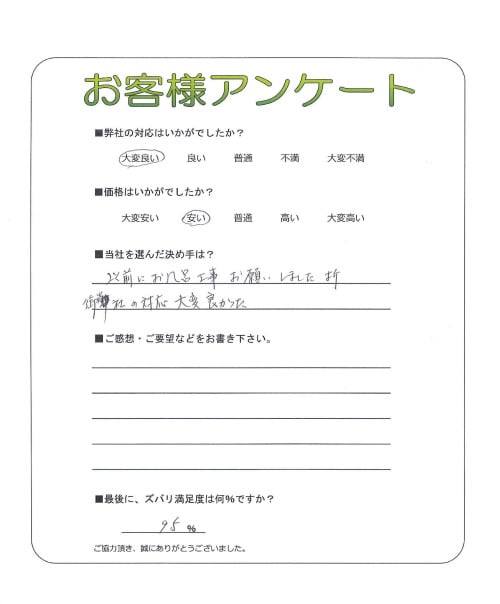 お客様アンケート
■弊社の対応はいかがでしたか?
大変良い 良い 普通 不満 大変不満
■価格はいかがでしたか?
大変安い 安い 普通 高い 大変高い
■当社を選んだ決め手は?
以前にお風呂工事お願いしました折
社の対応大変良かった
■ご感想・ご要望などをお書き下さい。
■最後に、ズバリ満足度は何%ですか?
95 %
ご協力頂き、誠にありがとうございました。